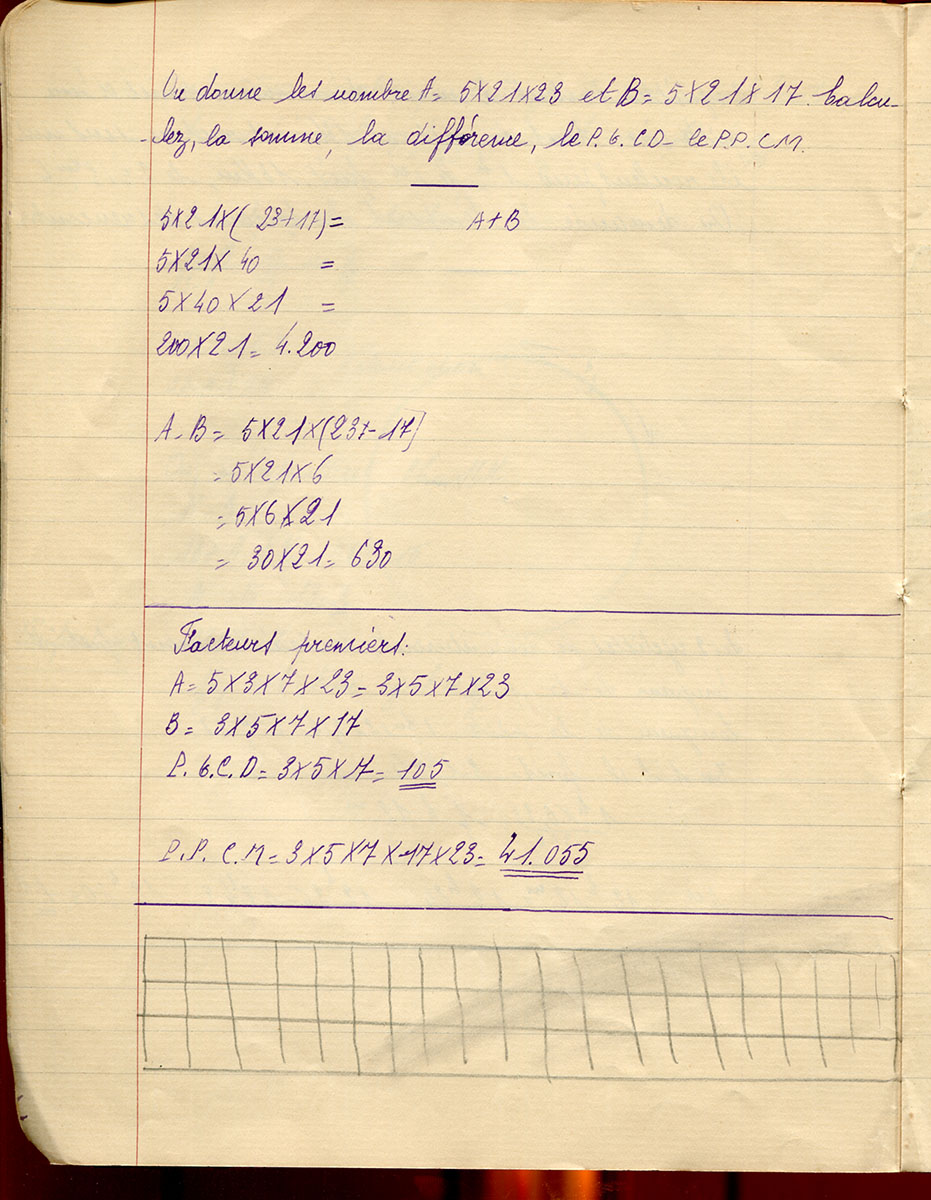 On donne les nombre A= 5×21×23 et B= 5×21×17. Calcu-
-lez, la somme, la différence, le P.G.CD- le P.P.CM.
5×21×( 23+17)= A+B
5×21×40 =
5×40×21 =
200×21= 4.200
A-B= 5×21×(23-17)
= 5×21×6
= 5×6×21
= 30×21= 630
Facteurs premiers:
A= 5×3×7×23= 3×5×7×23
B= 3×5×7×17
P.G.C.D= 3×5×7= 105
P.P.C.M= 3×5×7×17×23= 41.055